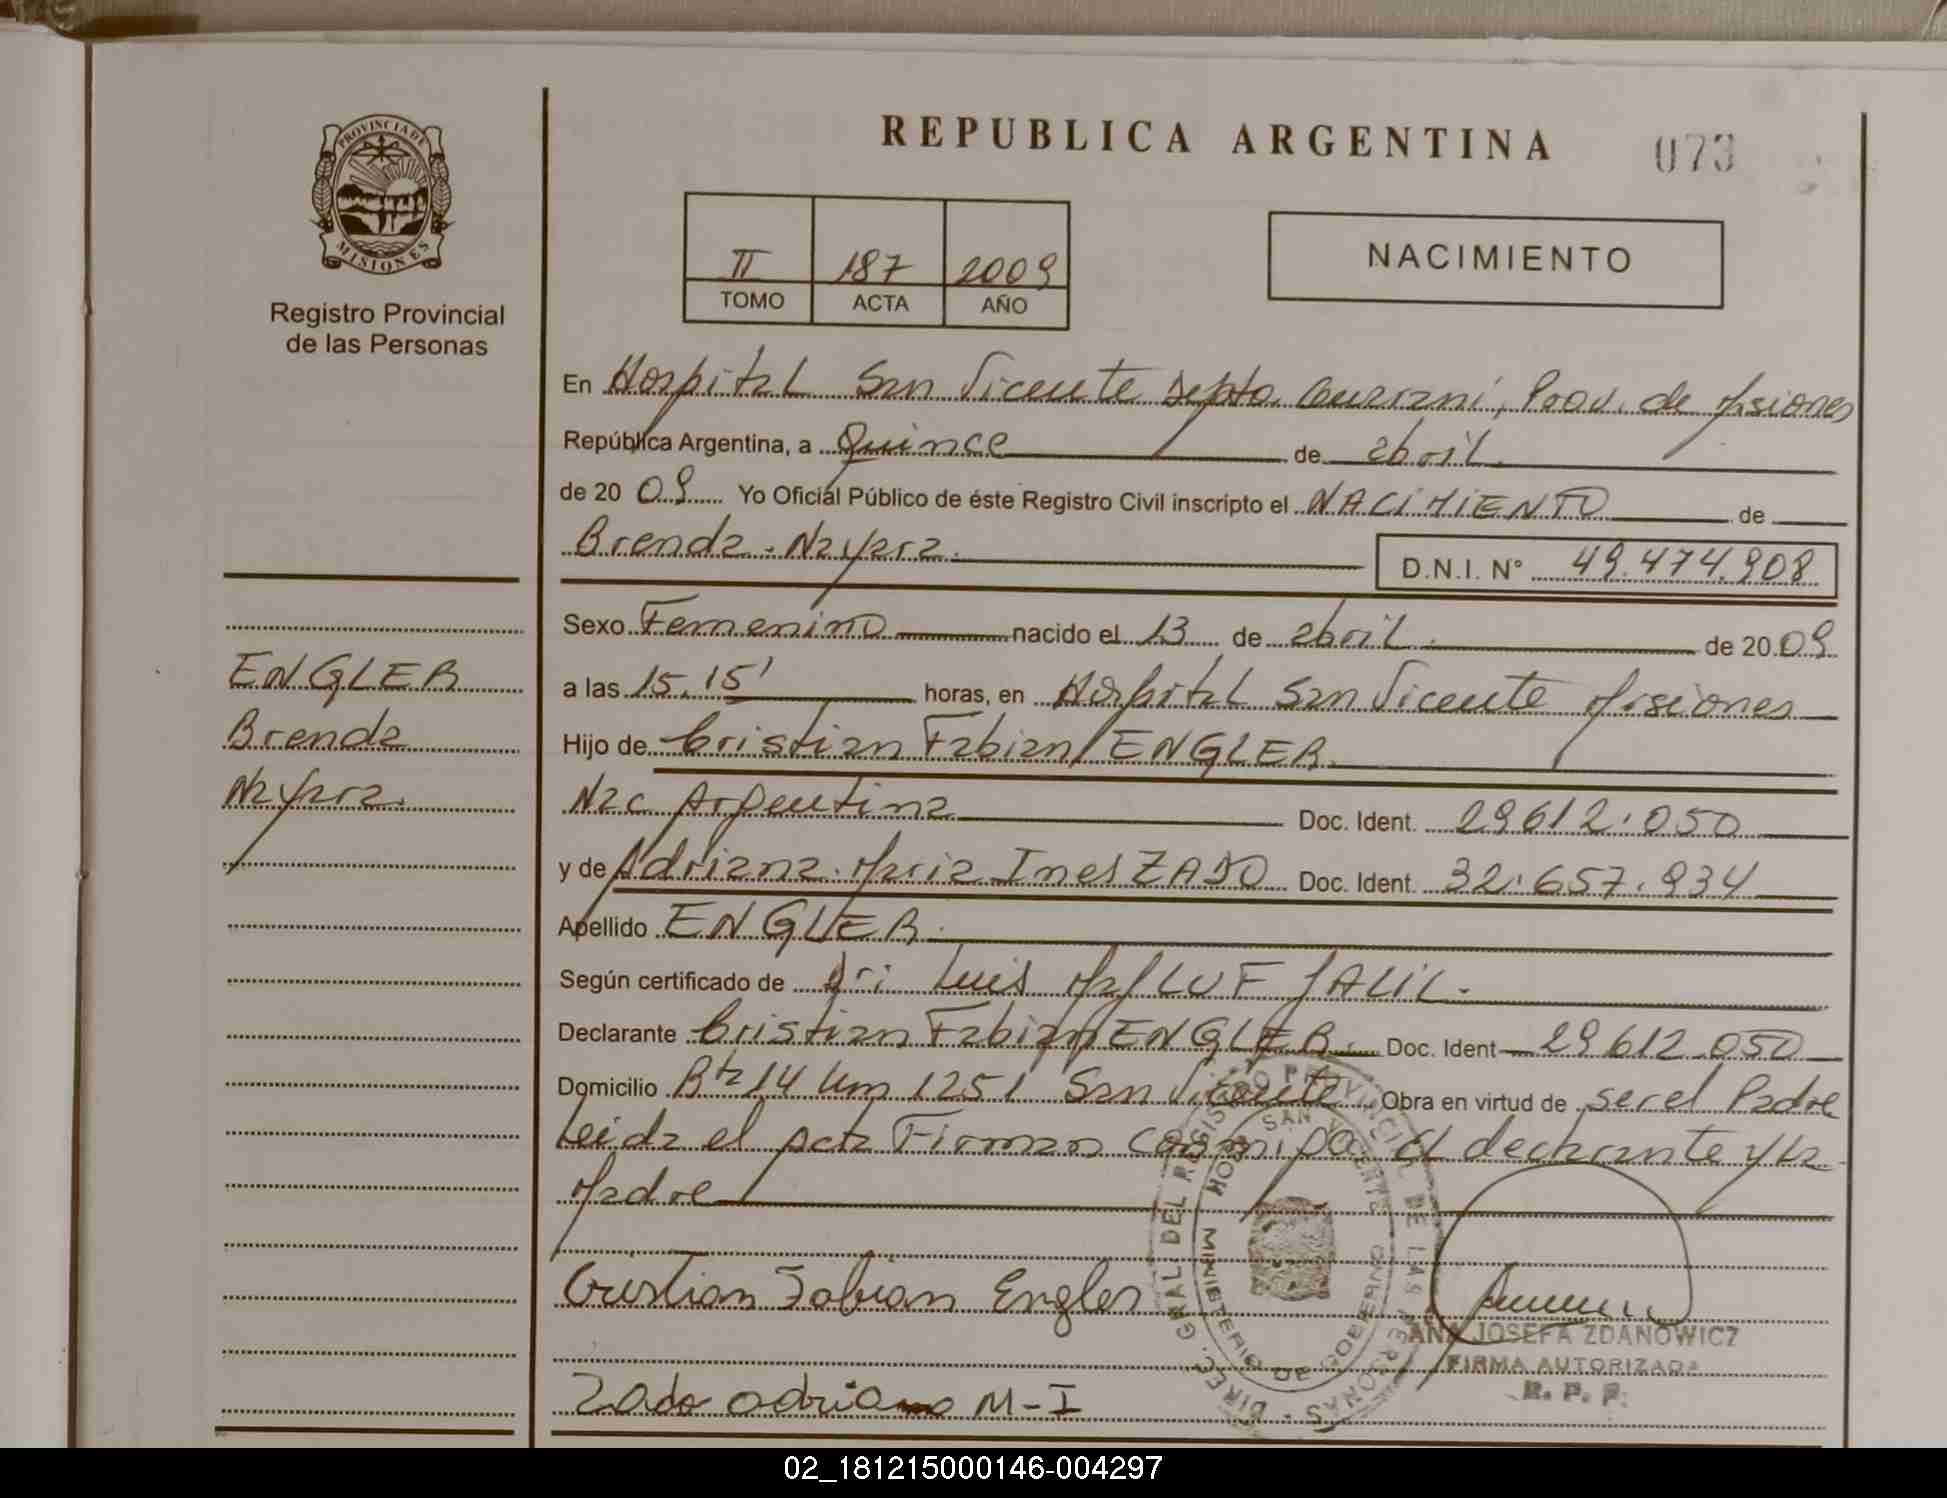 REPUBLICA ARGENTINA
073
PROVINCIA DE
MISIONES
Registro Provincial
de las Personas
II 187 2009
TOMO ACTA AÑO
NACIMIENTO
En Hospital San Vicente Depto. Guarani, Prov. de Misiones
República Argentina, a Quince de abril
de 20 09 Yo Oficial Público de éste Registro Civil inscripto el NACIMIENTO de
Brenda Nayara. D.N.I. N° 49.474.908
Sexo Femenino nacido el 13 de abril de 20 09
a las 15,15' horas, en Hospital San Vicente Misiones
Hijo de Cristian Fabian ENGLER
Nac Argentina Doc. Ident. 29612.050
y de Adriana Maria Ines ZADO Doc. Ident. 32.657.934
Apellido ENGLER
Según certificado de Dr. Luis JALIL
Declarante Cristian Fabian ENGLER Doc. Ident 29612.050
Domicilio 14 km 1251 San Vicente Obra en virtud de ser el Padre
Leida el acta Firman conmigo el declarante y la
Madre
ENGLER
Brenda
Nayara
Cristian Fabian Engler
Zado adriana M-I
DIREC. GRAL. DEL REGISTRO PROVINCIAL DE LAS PERSONAS
MINISTERIO DE GOBIERNO
ANA JOSEFA ZDANOWICZ
FIRMA AUTORIZADA
R. P. P.
02_181215000146-004297